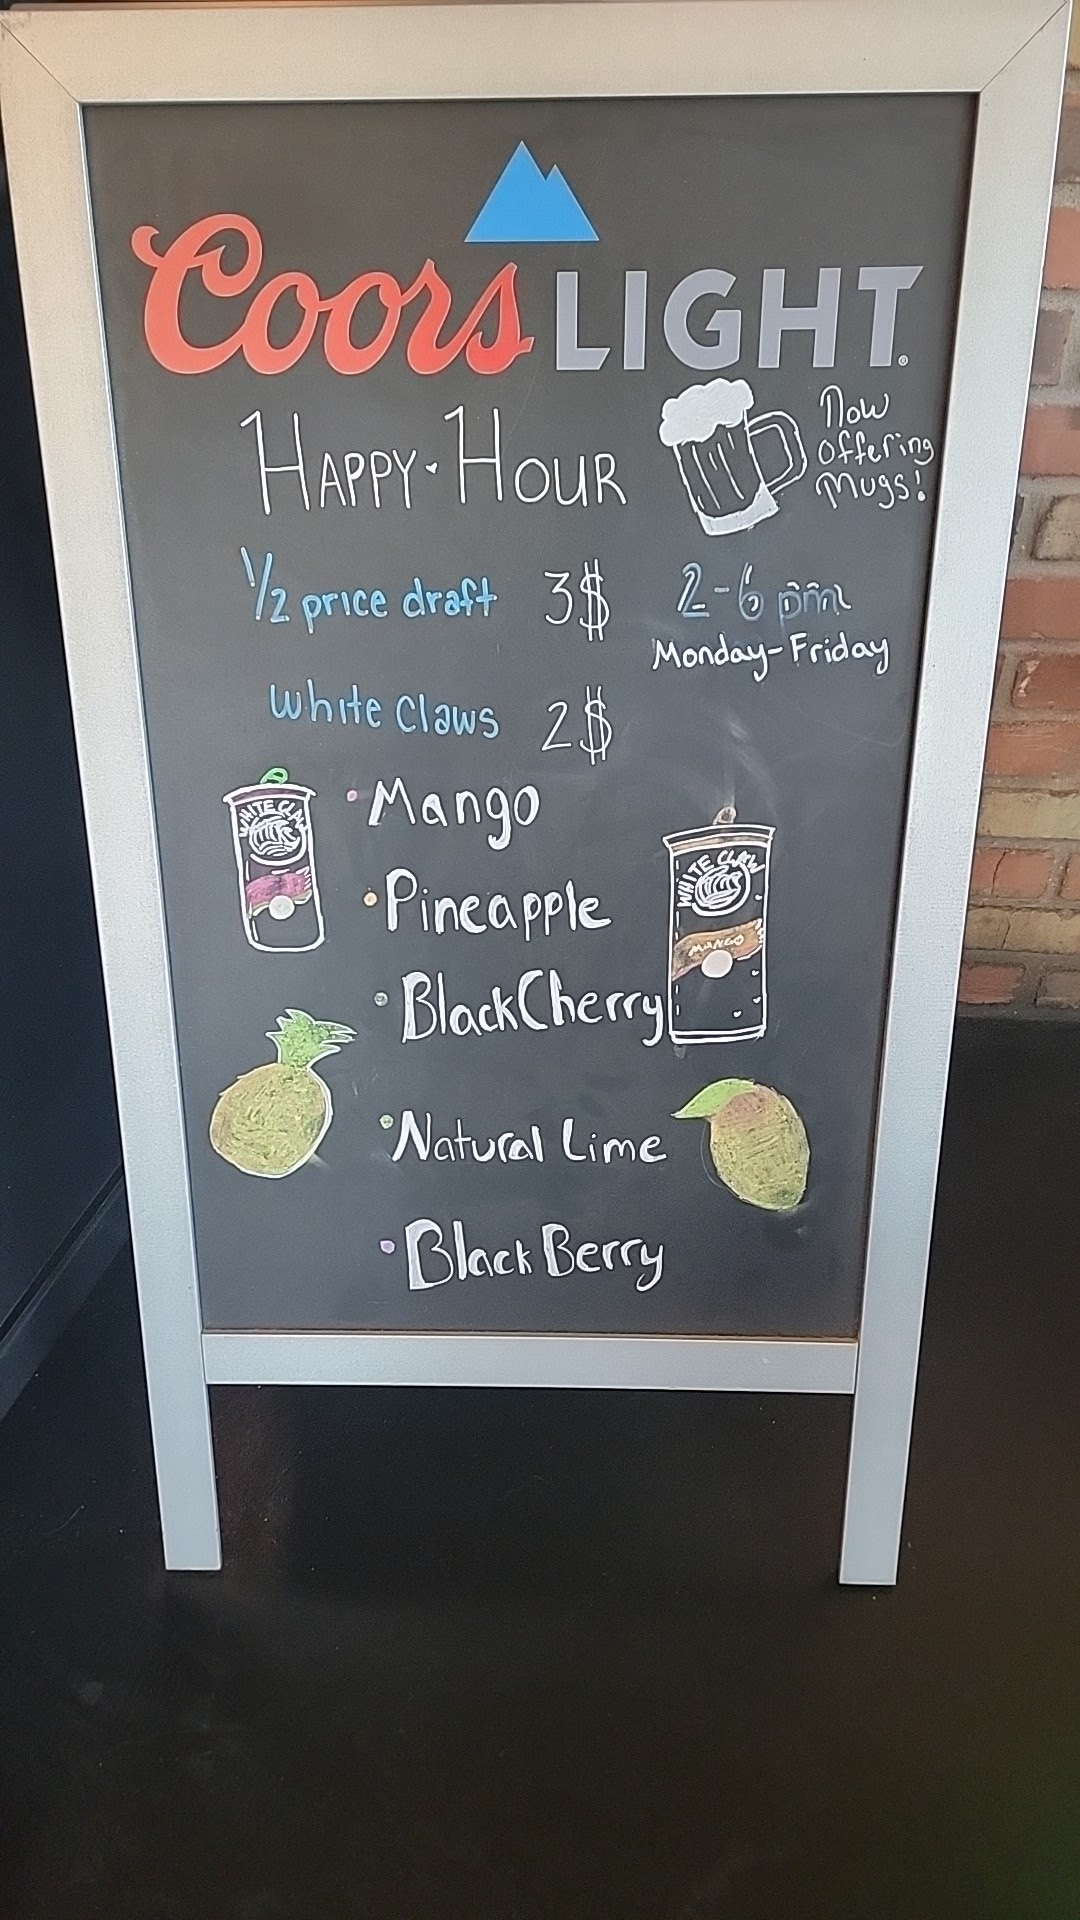 Coors LIGHT®
HAPPY·HOUR
Now
offering
mugs!
1/2 price draft 3$
2-6 pm
Monday-Friday
White Claws 2$
·Mango
·Pineapple
·BlackCherry
·Natural Lime
·Black Berry
WHITE CLAW
WHITE CLAW
MANGO